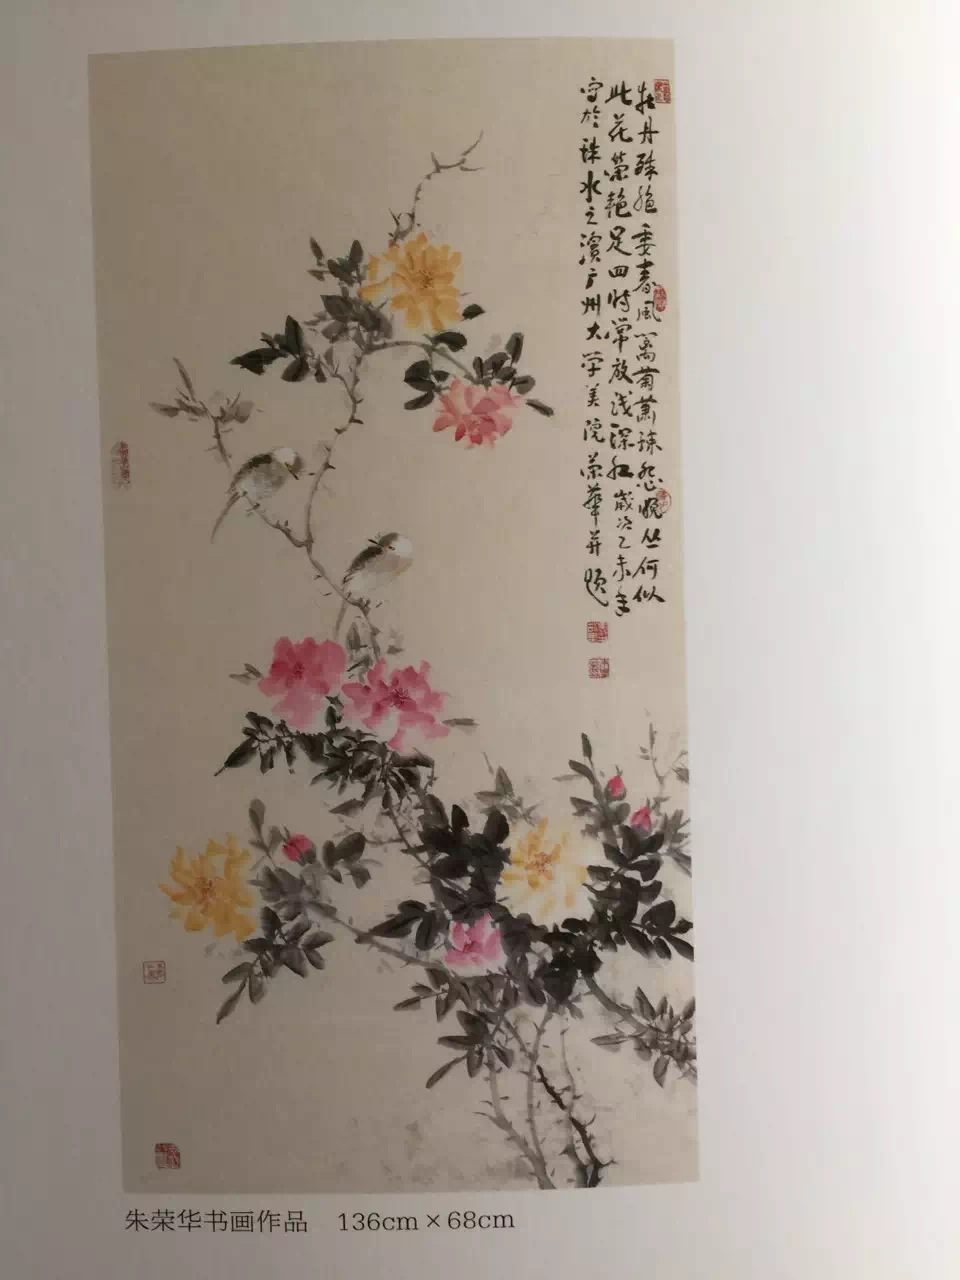 牡丹殊绝委春风篱菊萧疎怨晚丛何似
此花荣艳足四时常放浅深红岁次乙未年
写於珠水之滨广州大学美院荣华并题
朱荣华书画作品 136cm×68cm